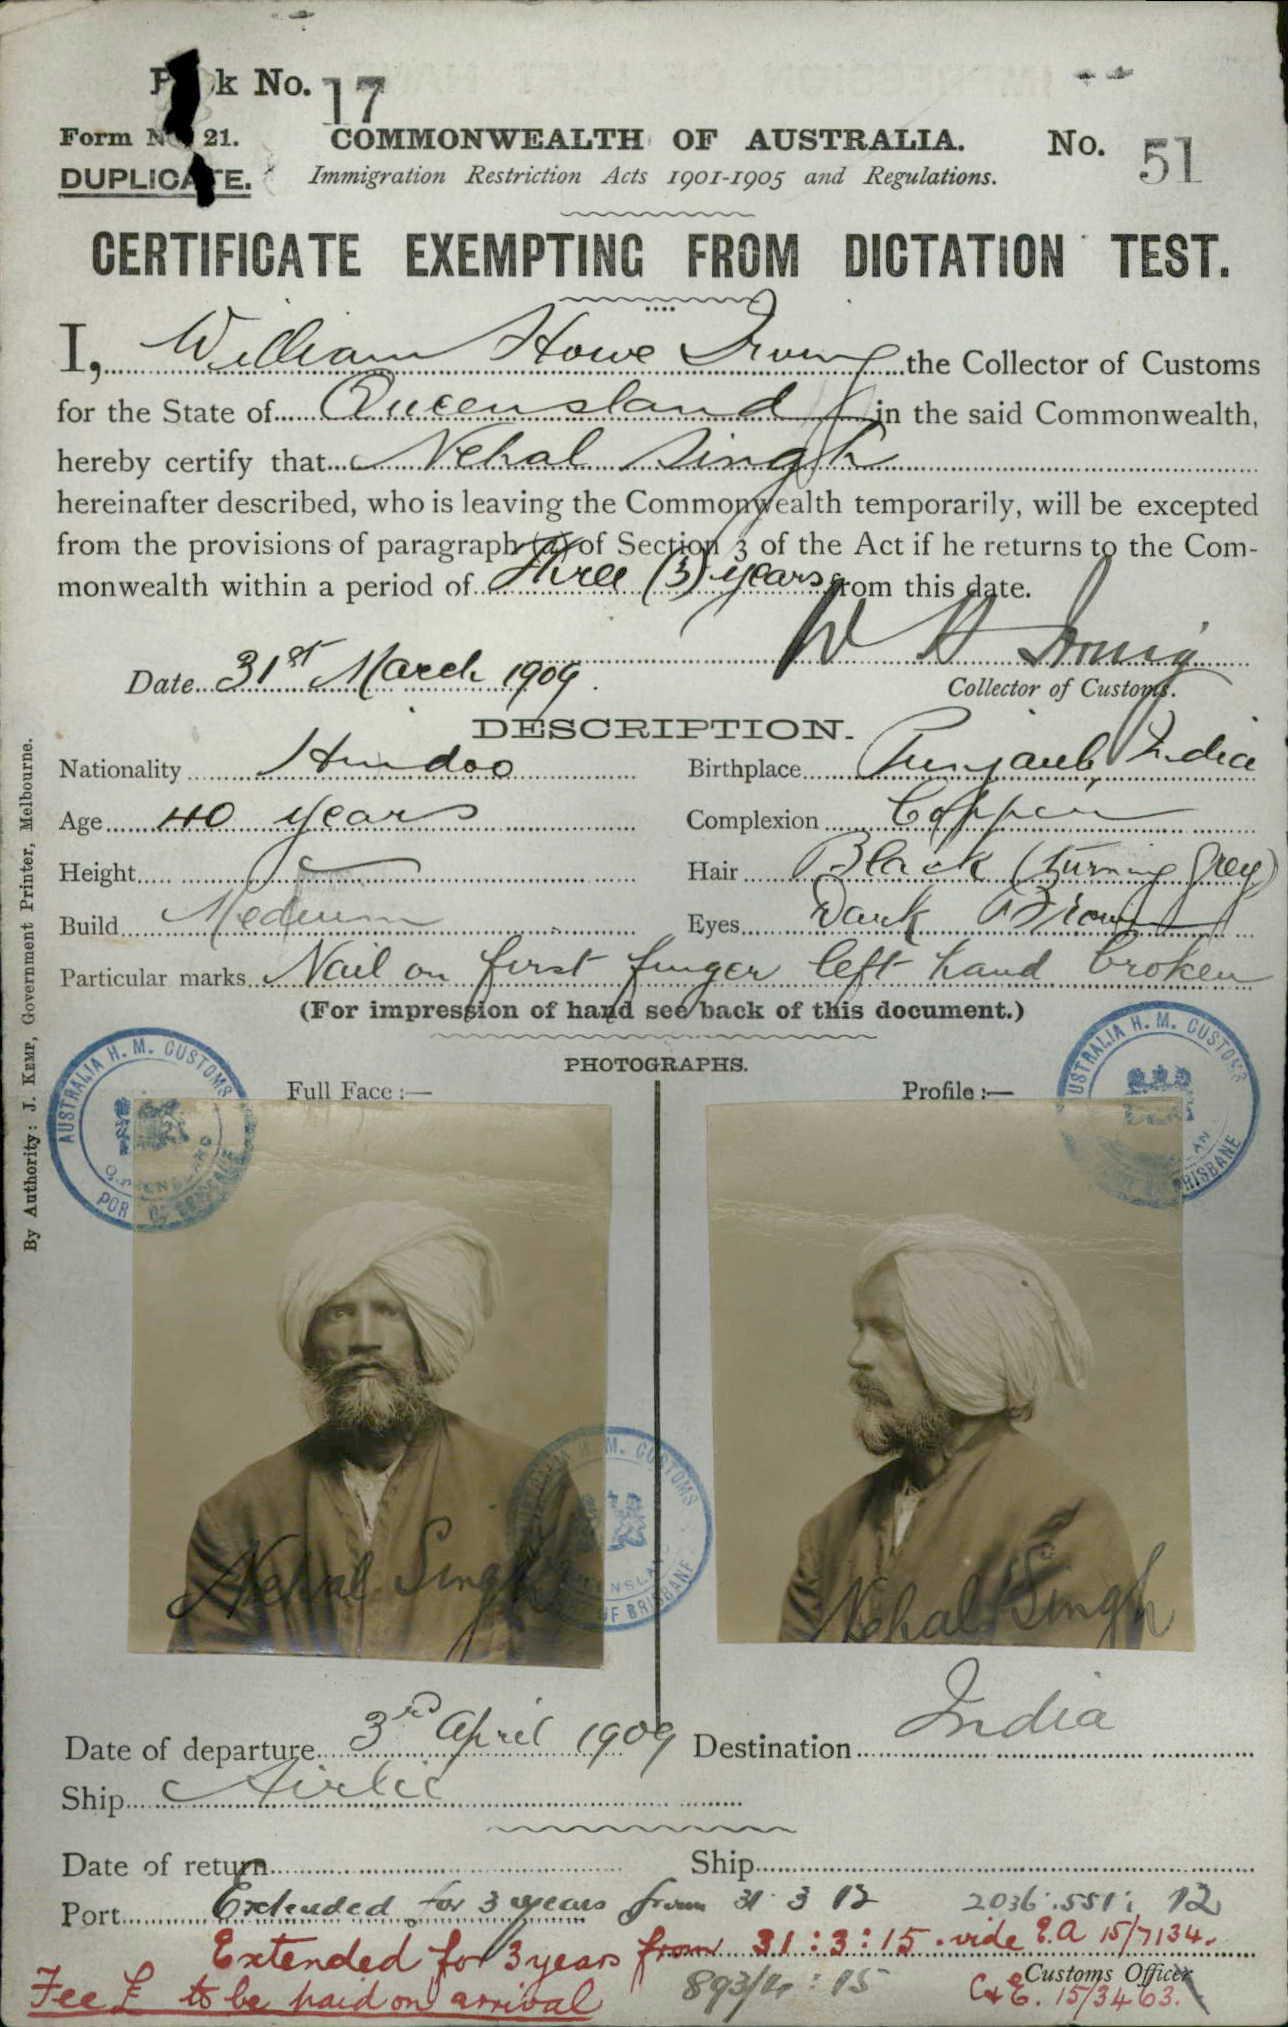 k No. 17
Form No. 21.
COMMONWEALTH OF AUSTRALIA.
No. 51
DUPLICATE.
Immigration Restriction Acts 1901-1905 and Regulations.
CERTIFICATE EXEMPTING FROM DICTATION TEST.
I, William Howe Irving the Collector of Customs
for the State of Queensland in the said Commonwealth,
hereby certify that Nehal Singh
hereinafter described, who is leaving the Commonwealth temporarily, will be excepted
from the provisions of paragraph (a) of Section 3 of the Act if he returns to the Com-
monwealth within a period of Three (3) years from this date.
W H Irving
Date 31st March 1909.
Collector of Customs.
DESCRIPTION.
Nationality Hindoo
Birthplace Punjaub, India
Age 40 years
Complexion Copper
Height
Hair Black (turning Grey)
Build Medium
Eyes Dark Brown
Particular marks Nail on first finger left hand broken
(For impression of hand see back of this document.)
PHOTOGRAPHS.
Full Face :—
Profile :—
AUSTRALIA H. M. CUSTOMS
QUEENSLAND
PORT OF BRISBANE
AUSTRALIA H. M. CUSTOMS
BRISBANE
H. M. CUSTOMS
QUEENSLAND
OF BRISBANE
Nehal Singh
Nehal Singh
Date of departure 3rd April 1909
Destination India
Ship Airlie
Date of return
Ship
Port Extended for 3 years from 31 3 12 2036:551: 12
Extended for 3 years from 31:3:15. vide E.A 15/7134.
Customs Officer
Fee £ to be paid on arrival
C & E. 15/3463.
By Authority: J. KEMP, Government Printer, Melbourne.